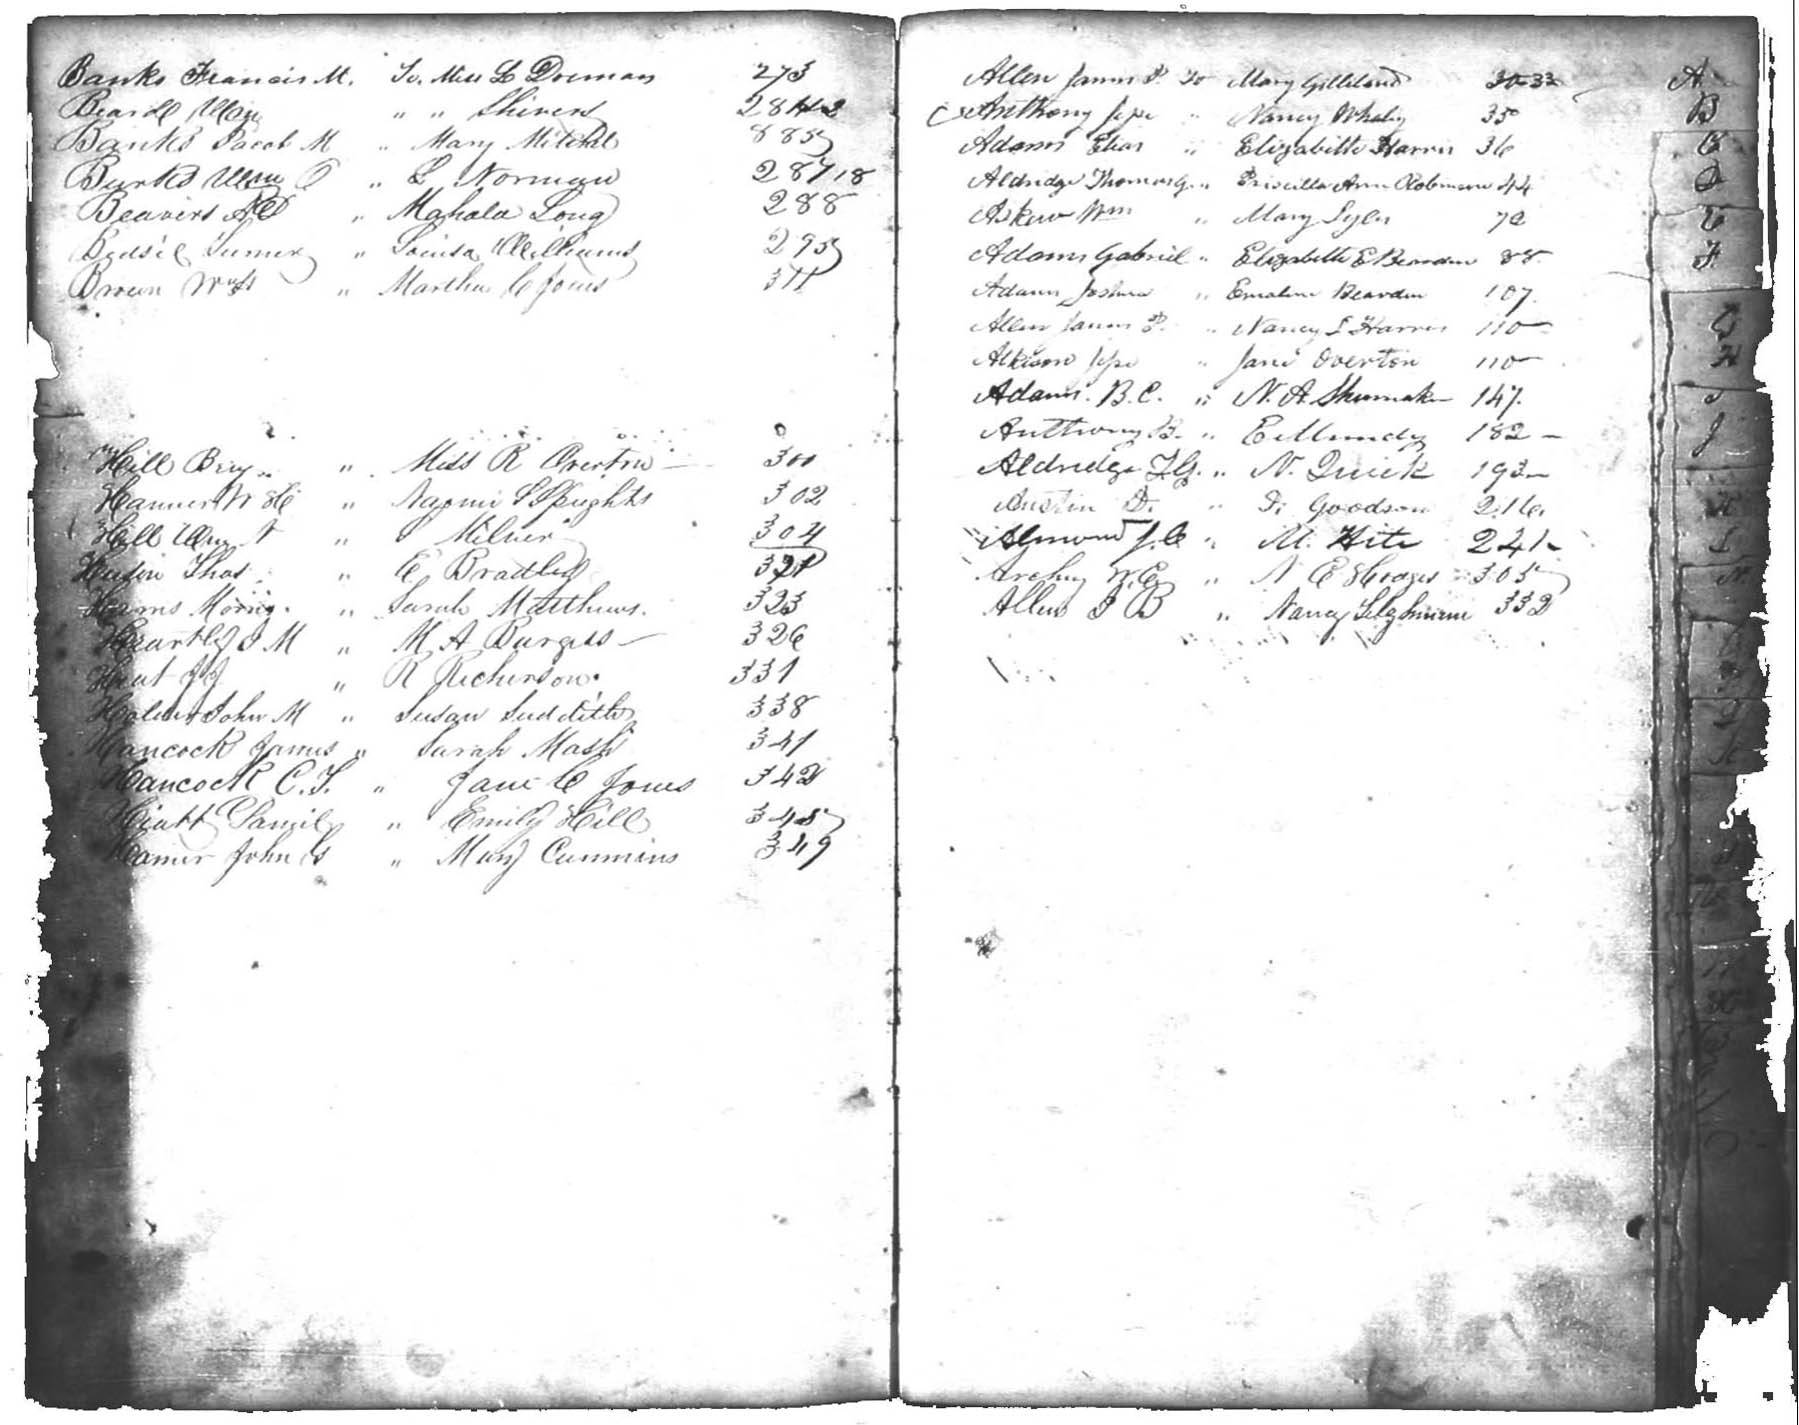 Banks Francis M. To. Miss L Dorman 273
Beard Wm " " Shivers 284
Banks Jacob M " Mary Mitchel 885
Burks Wm " L Norman 287
Beavers " Mahala Long 288
" Louisa Williams 295
Brown " Martha C Jones 311
Hill Benj " Miss R Overton 300
Hanner W H " Naomi Speights 302
Hill Wm " Milner 304
Thos " E Bradley 321
Harris " Sarah Matthews. 323
M " M A Burgess 326
Hunt J J " R Richerson. 331
John M " Susan Suddith 338
Hancock James " Sarah Mash 341
Hancock C. T. " Jane C Jones 342
Hiatt " Emily Hill 345
Hamer John S " Mary Cummins 349
Allen James P. To Mary Gilleland 30-33
Anthony Jesse " Nancy Whaley 35
Adams Elias " Elizabeth Harris 36
Aldridge Thomas G. " Priscilla Ann Robinson 44
Askew Wm " Mary Tyler 72
Adams Gabriel " Elizabeth E Bearden 88
Adams Joshua " Emaline Bearden 107.
Allen James P. " Nancy Harris 110
Atkison Jesse " Jane Overton 110
Adams. B. C. " N. A. Shumake 147.
Anthony B. " E Mundy 182
Aldridge T. G. " N. Quick 193
Austin D. " Goodson 216.
Almond J. C " M. Hite 241
W. E " N E Hodges 305
Allen J B " Nancy 332
A
B
C
D
E
F
G
H
I
J